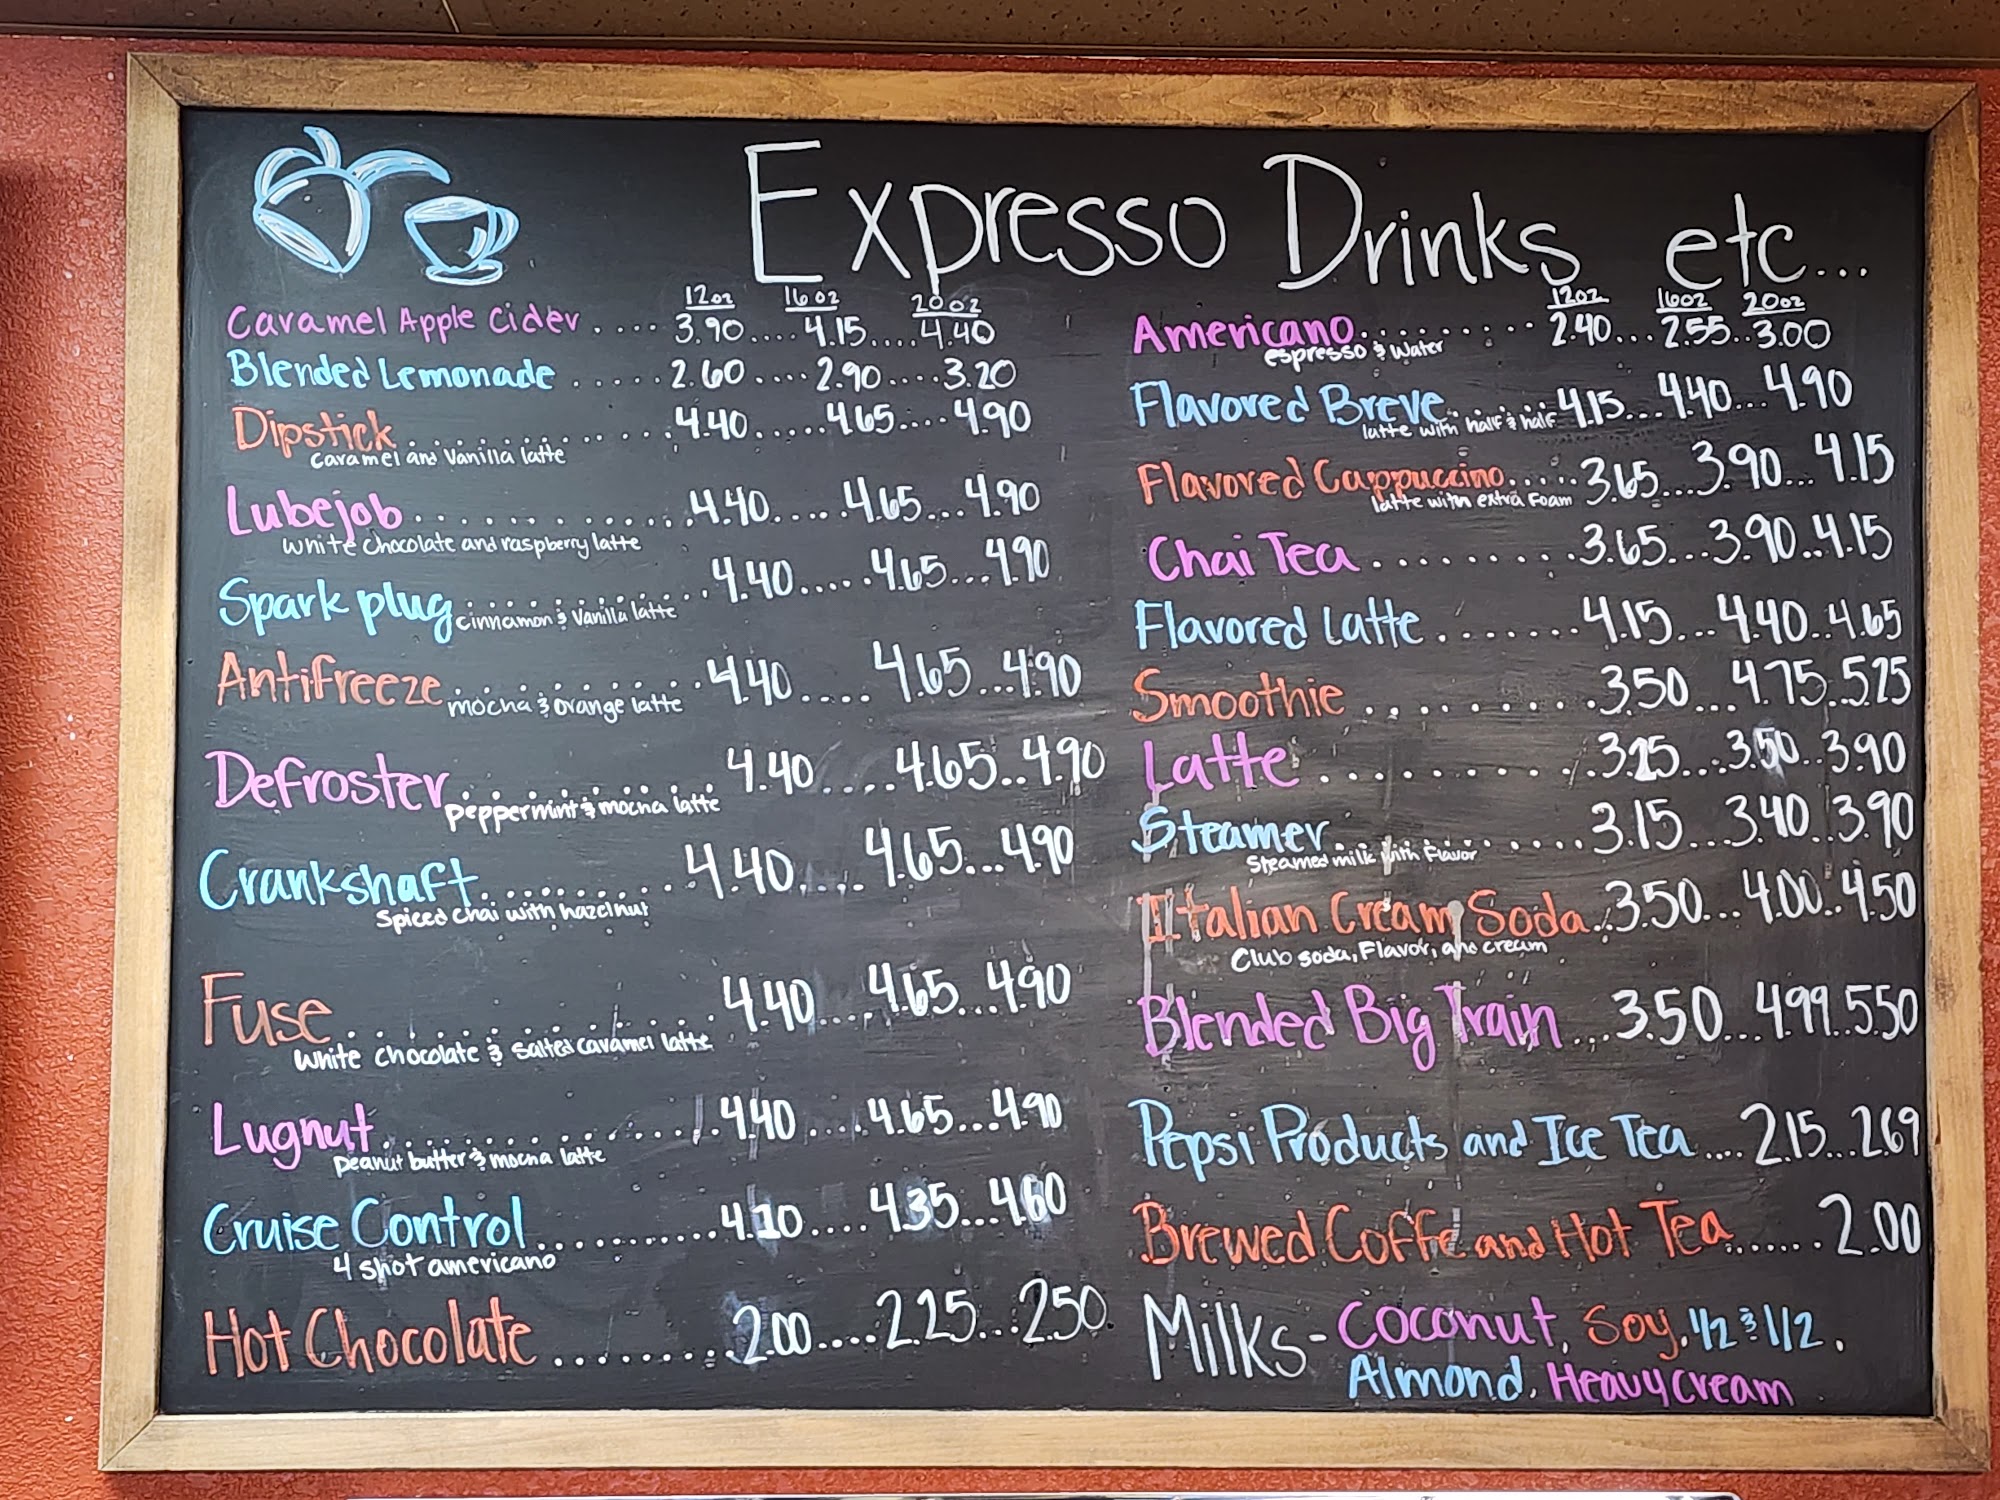 Expresso Drinks etc...
12oz 16oz 20oz
Caramel Apple Cider .... 3.90....4.15....4.40
Blended Lemonade ..... 2.60....2.90....3.20
Dipstick.............4.40.....4.65....4.90
Caramel and Vanilla latte
Lubejob.............4.40.....4.65...4.90
White Chocolate and raspberry latte
Spark plug............4.40.....4.65...4.90
cinnamon & Vanilla latte
Antifreeze............4.40....4.65...4.90
mocha & orange latte
Defroster............4.40....4.65..4.90
peppermint & mocha latte
Crankshaft..........4.40....4.65...4.90
Spiced Chai with hazelnut
Fuse.............4.40....4.65...4.90
White chocolate & salted caramel latte
Lugnut.............4.40....4.65...4.90
peanut butter & mocha latte
Cruise Control..........4.10....4.35...4.60
4 shot americano
Hot Chocolate........2.00....2.25...2.50
12oz 16oz 20oz
Americano.........2.40...2.55..3.00
espresso & Water
Flavored Breve.....4.15...4.40...4.90
latte with half & half
Flavored Cappuccino.....3.65...3.90...4.15
latte with extra Foam
Chai Tea.........3.65...3.90..4.15
Flavored Latte.......4.15...4.40..4.65
Smoothie........3.50...4.75..5.25
Latte..........3.25...3.50..3.90
Steamer...........3.15...3.40..3.90
Steamed milk with Flavor
Italian Cream Soda..3.50...4.00..4.50
Club soda, Flavor, and cream
Blended Big Train...3.50...4.99..5.50
Pepsi Products and Ice Tea....2.15...2.69
Brewed Coffe and Hot Tea.......2.00
Milks- Coconut, Soy, 1/2 & 1/2.
Almond. Heavy cream